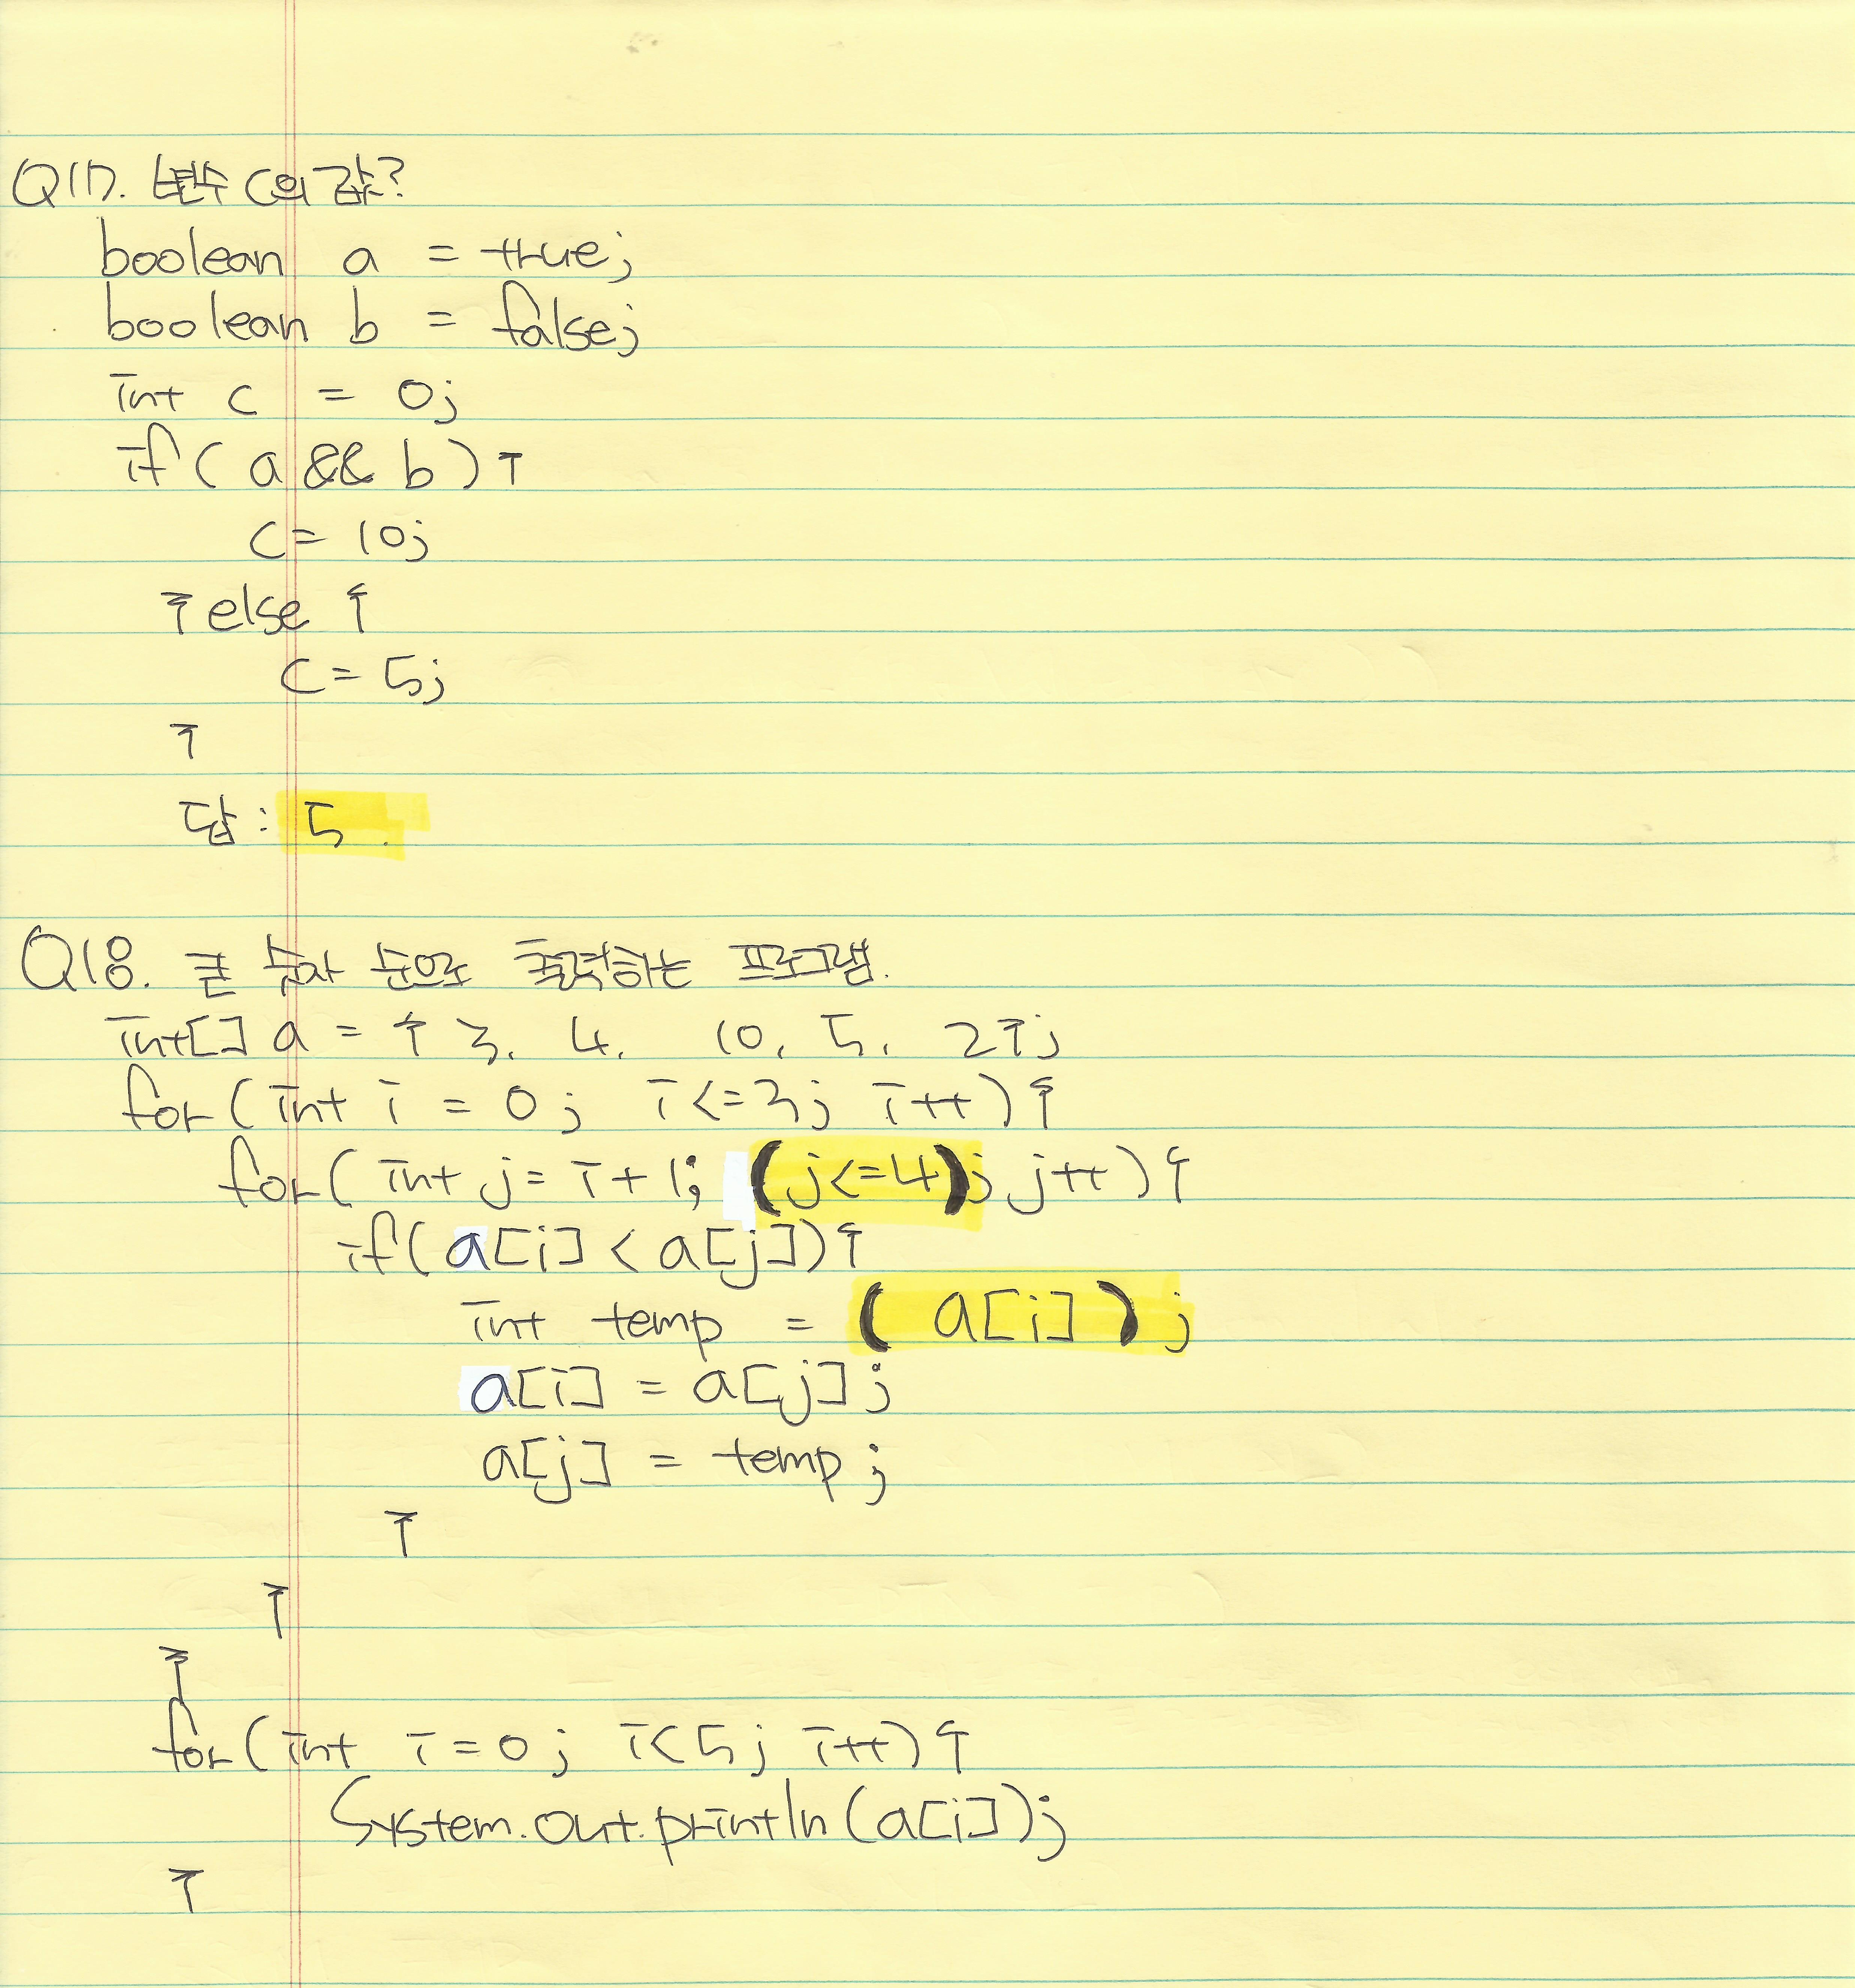 Q17. 변수 C의 값?
boolean a = true;
boolean b = false;
int c = 0;
if ( a && b ) {
c = 10;
} else {
c = 5;
}
답 : 5.
Q18. 큰 숫자 순으로 출력하는 프로그램.
int[] a = { 3, 4, 10, 5, 2 };
for ( int i = 0 ; i <= 3 ; i++ ) {
for ( int j = i + 1; ( j <= 4 ) ; j++ ) {
if ( a[i] < a[j] ) {
int temp = ( a[i] ) ;
a[i] = a[j] ;
a[j] = temp ;
}
}
}
for ( int i = 0 ; i < 5 ; i++ ) {
System.out.println (a[i]);
}